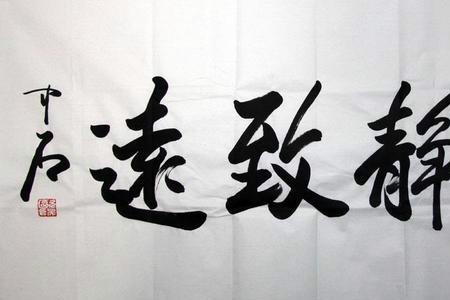 静致遠
中石